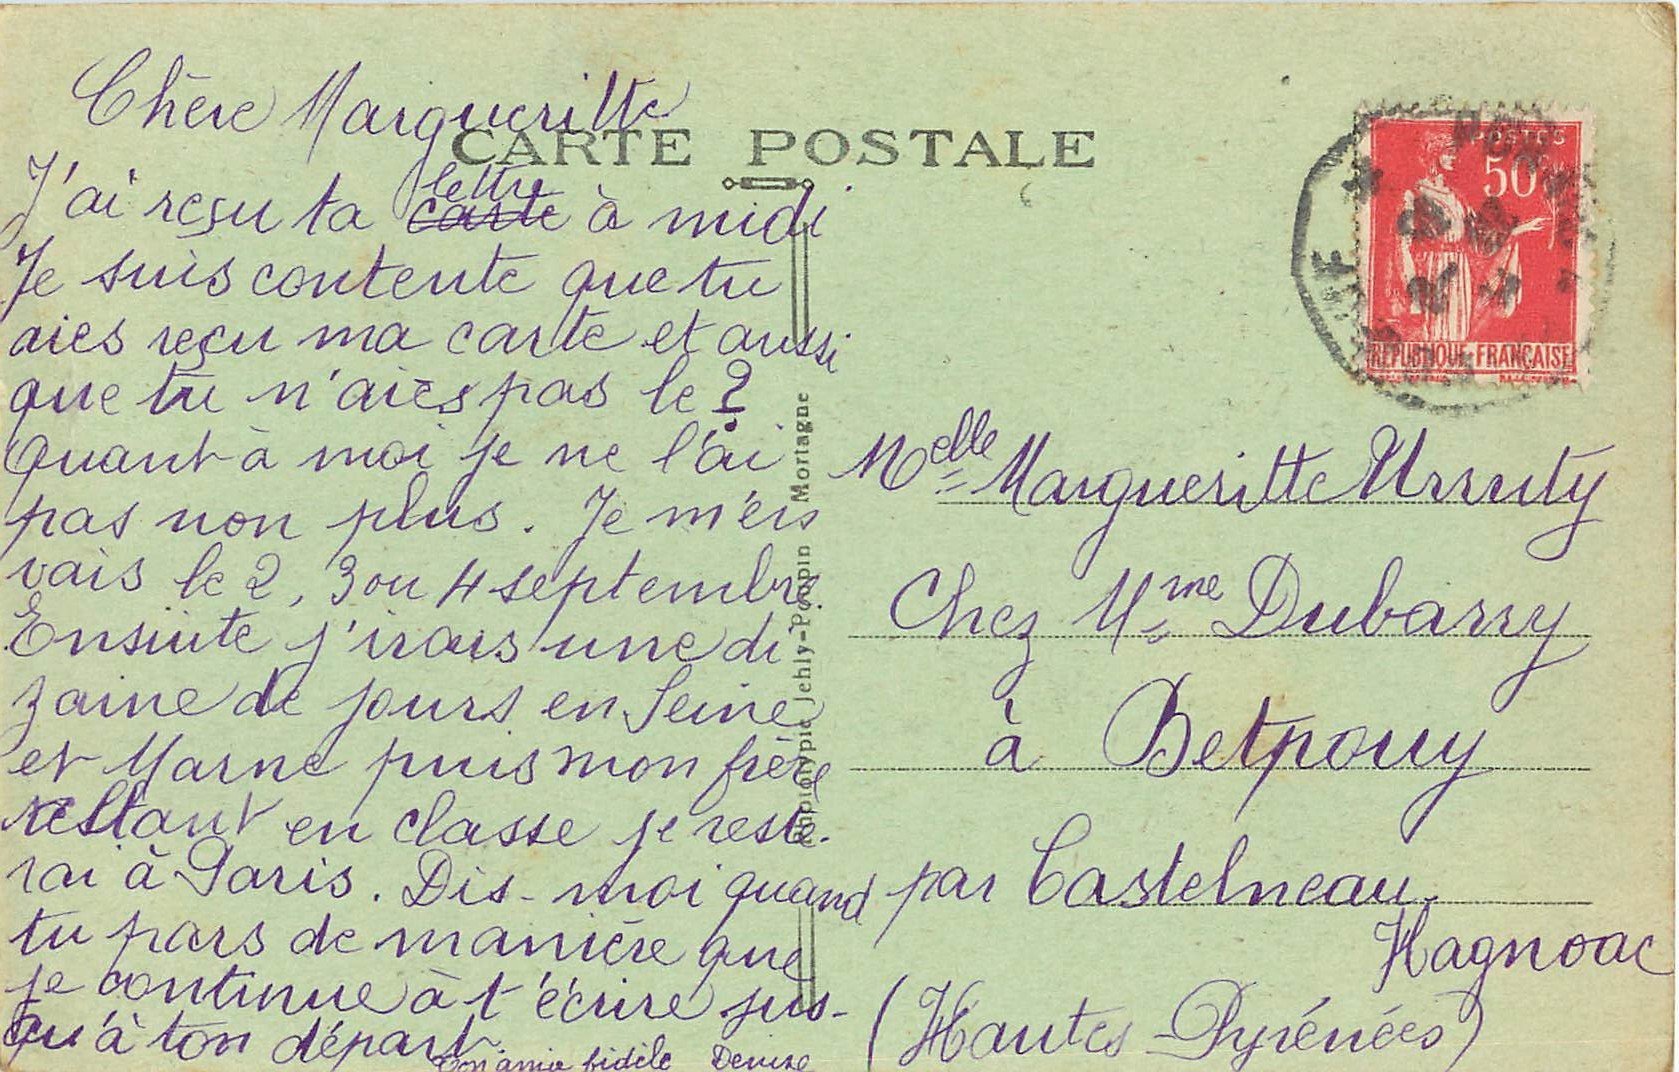 Chère Margueritte
CARTE POSTALE
J'ai reçu ta lettre carte à midi
Je suis contente que tu
aies reçu ma carte et aussi
que tu n'aies pas le ?
quant à moi je ne l'ai
pas non plus. Je m'en
vais le 2, 3 ou 4 septembre.
Ensuite j'irais une di
zaine de jours en Seine
et Marne puis mon frère
restant en classe je reste-
rai à Paris. Dis-moi quand
tu pars de manière que
je continue à t'écrire jus-
qu'à ton départ.
Ton amie fidèle Denise
Jehly-Poupin Mortagne
POSTES
50c
REPUBLIQUE FRANÇAISE
Melle Margueritte Urruty
Chez Mme Dubarry
à Betpouy
par Castelneau
Magnoac
(Hautes-Pyrénées)